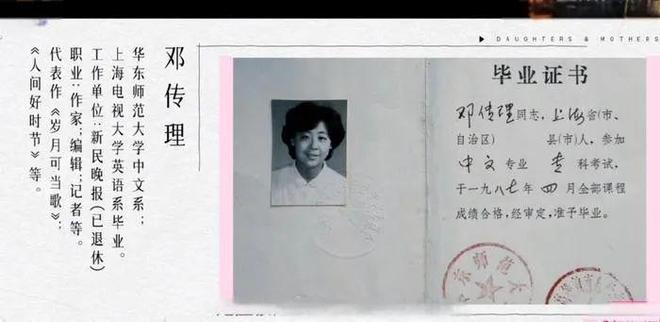 DAUGHTERS & MOTHERS
邓传理
华东师范大学中文系；
上海电视大学英语系毕业。
工作单位：新民晚报（已退休）
职业：作家；编辑；记者等。
代表作《岁月可当歌》；
《人间好时节》等。
毕业证书
邓传理同志，上海省（市、
自治区） 县（市）人，参加
中文专业 专科考试，
于一九八七年 四 月全部课程
成绩合格，经审定，准予毕业。
东师范大